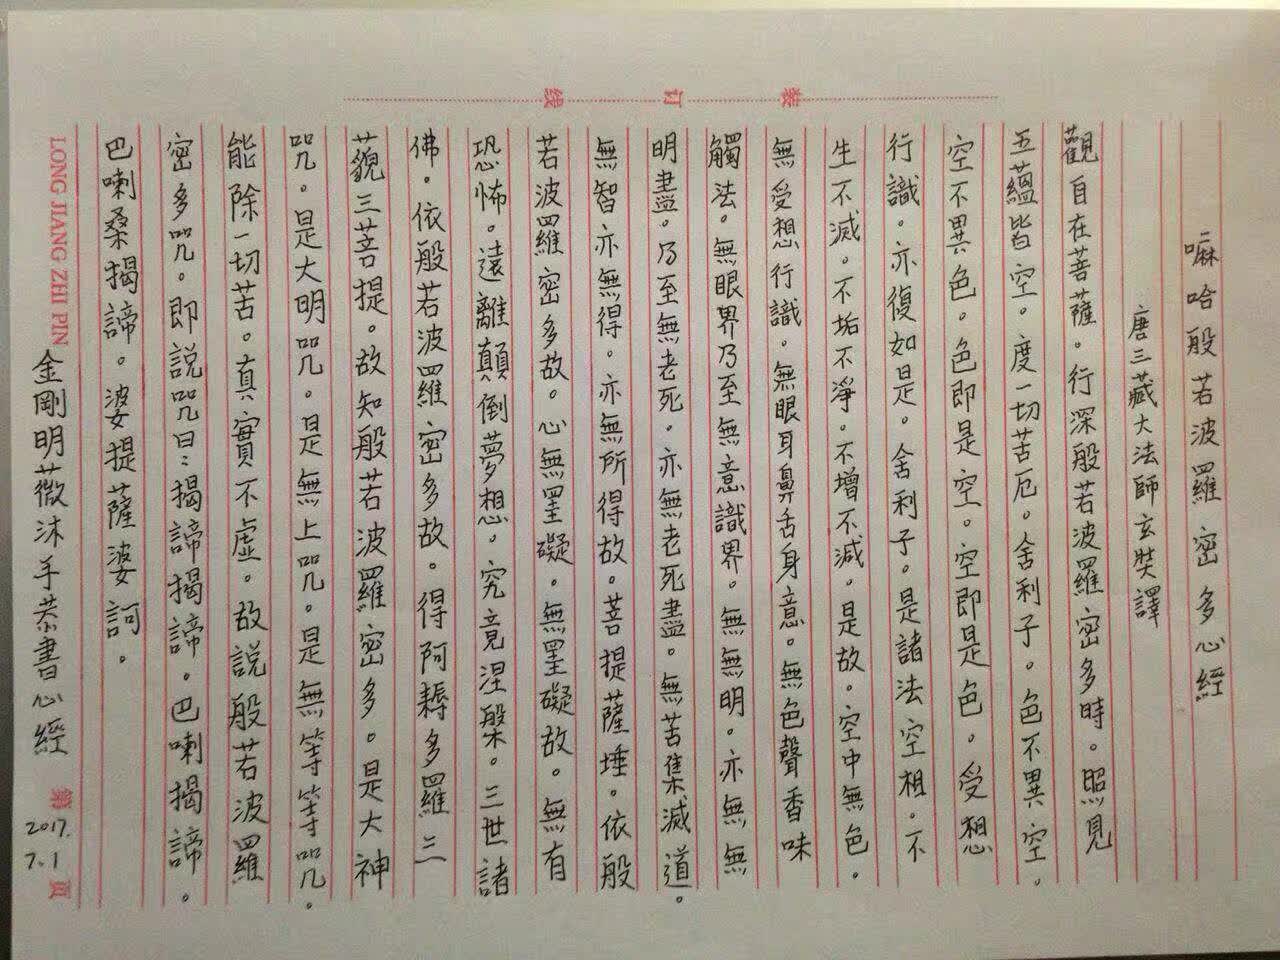 装订线
嘛哈般若波羅密多心經
唐三藏大法師玄奘譯
觀自在菩薩。行深般若波羅密多時。照見
五蘊皆空。度一切苦厄。舍利子。色不異空。
空不異色。色即是空。空即是色。受想
行識。亦復如是。舍利子。是諸法空相。不
生不滅。不垢不淨。不增不減。是故。空中無色。
無受想行識。無眼耳鼻舌身意。無色聲香味
觸法。無眼界乃至無意識界。無無明。亦無無
明盡。乃至無老死。亦無老死盡。無苦集滅道。
無智亦無得。亦無所得故。菩提薩埵。依般
若波羅密多故。心無罣礙。無罣礙故。無有
恐怖。遠離顛倒夢想。究竟涅槃。三世諸
佛。依般若波羅密多故。得阿耨多羅三
藐三菩提。故知般若波羅密多。是大神
咒。是大明咒。是無上咒。是無等等咒。
能除一切苦。真實不虛。故説般若波羅
密多咒。即説咒曰：揭諦揭諦。巴喇揭諦。
巴喇桑揭諦。婆提薩婆訶。
LONG JIANG ZHI PIN
金剛明薇沐手恭書心經
第 頁
2017.
7.1